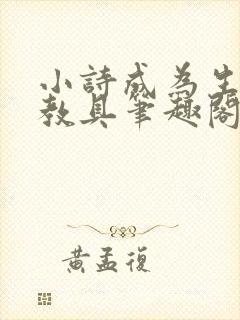 小詩成為生
教具筆趣閣
黃孟復